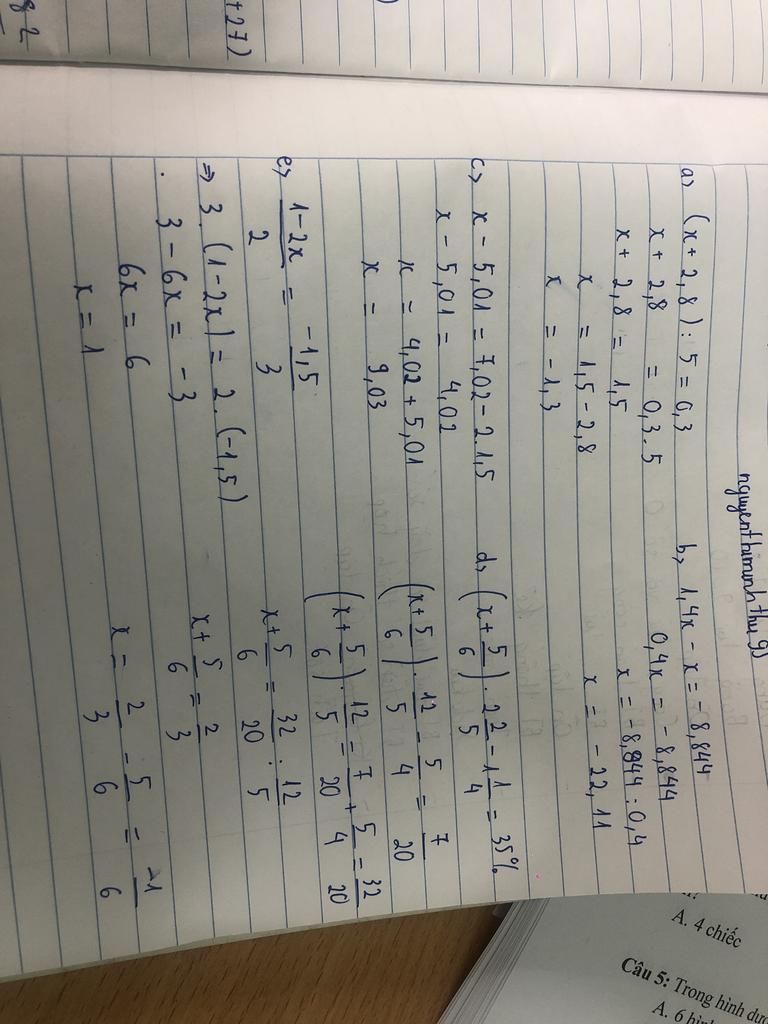 +27)
g 2
nguyenthiminhthu 9
a, (x + 2,8) : 5 = 0,3
x + 2,8 = 0,3.5
x + 2,8 = 1,5
x = 1,5 - 2,8
x = -1,3
b, 1,4x - x = -8,844
0,4x = -8,844
x = -8,844 : 0,4
x = -22,11
c, x - 5,01 = 7,02 - 2.1,5
x - 5,01 = 4,02
x = 4,02 + 5,01
x = 9,03
d, (x + 5/6) . 2 2/5 - 1 1/4 = 35%
(x + 5/6) . 12/5 - 5/4 = 7/20
(x + 5/6) . 12/5 = 7/20 + 5/4 = 32/20
x + 5/6 = 32/20 : 12/5
x + 5/6 = 2/3
x = 2/3 - 5/6 = -1/6
e, 1-2x/2 = -1,5/3
⇒ 3.(1-2x) = 2.(-1,5)
3 - 6x = -3
6x = 6
x = 1
A. 4 chiếc
Câu 5: Trong hình dư
A. 6 hì